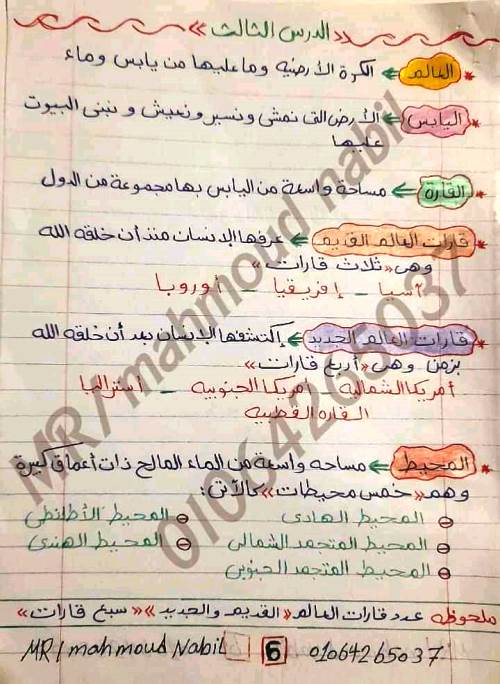 «الدرس الثالث»
* العالم ← الكرة الأرضية وما عليها من يابس وماء
* اليابس ← الأرض التى نمشى ونسير ونعيش و نبنى البيوت
عليها
* القارة ← مساحة واسعة من اليابس بها مجموعة من الدول
* قارات العالم القديم ← عرفها الإنسان منذ أن خلقه الله
وهى «ثلاث قارات»
آسيا - إفريقيا - أوروبا
* قارات العالم الجديد ← إكتشفها الإنسان بعد أن خلقه الله
بزمن وهى «أربع قارات»
أمريكا الشمالية - أمريكا الجنوبية - أستراليا
القاره القطبيه
* المحيط ← مساحه واسعة من الماء المالح ذات أعماق كبيرة
وهم «خمس محيطات» كالأتى:
⊖ المحيط الهادى ⊖ المحيط الأطلنطى
⊖ المحيط المتجمد الشمالى ⊖ المحيط الهندى
⊖ المحيط المتجمد الجنوبى
ملحوظه عدد قارات العالم «القديم والجديد» «سبع قارات»
MR/mahmoud Nabil 6 01064265037
MR/mahmoud nabil
01064265037